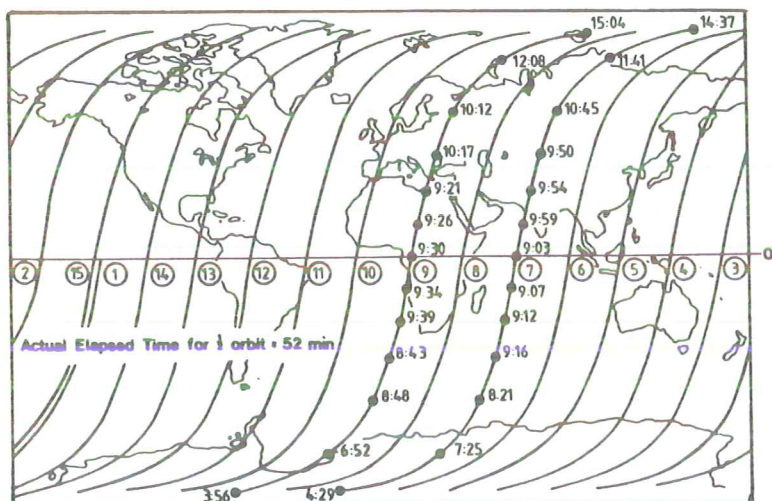 15:04
14:37
12:08
11:41
10:12
10:45
10:17
9:50
9:21
9:54
9:26
9:59
9:30
9:03
0
2 15 1 14 13 12 11 10 9 8 7 6 5 4 3
9:34
9:07
9:39
9:12
Actual Elapsed Time for ½ orbit = 52 min.
8:43
9:16
8:48
8:21
6:52
7:25
3:56
4:29